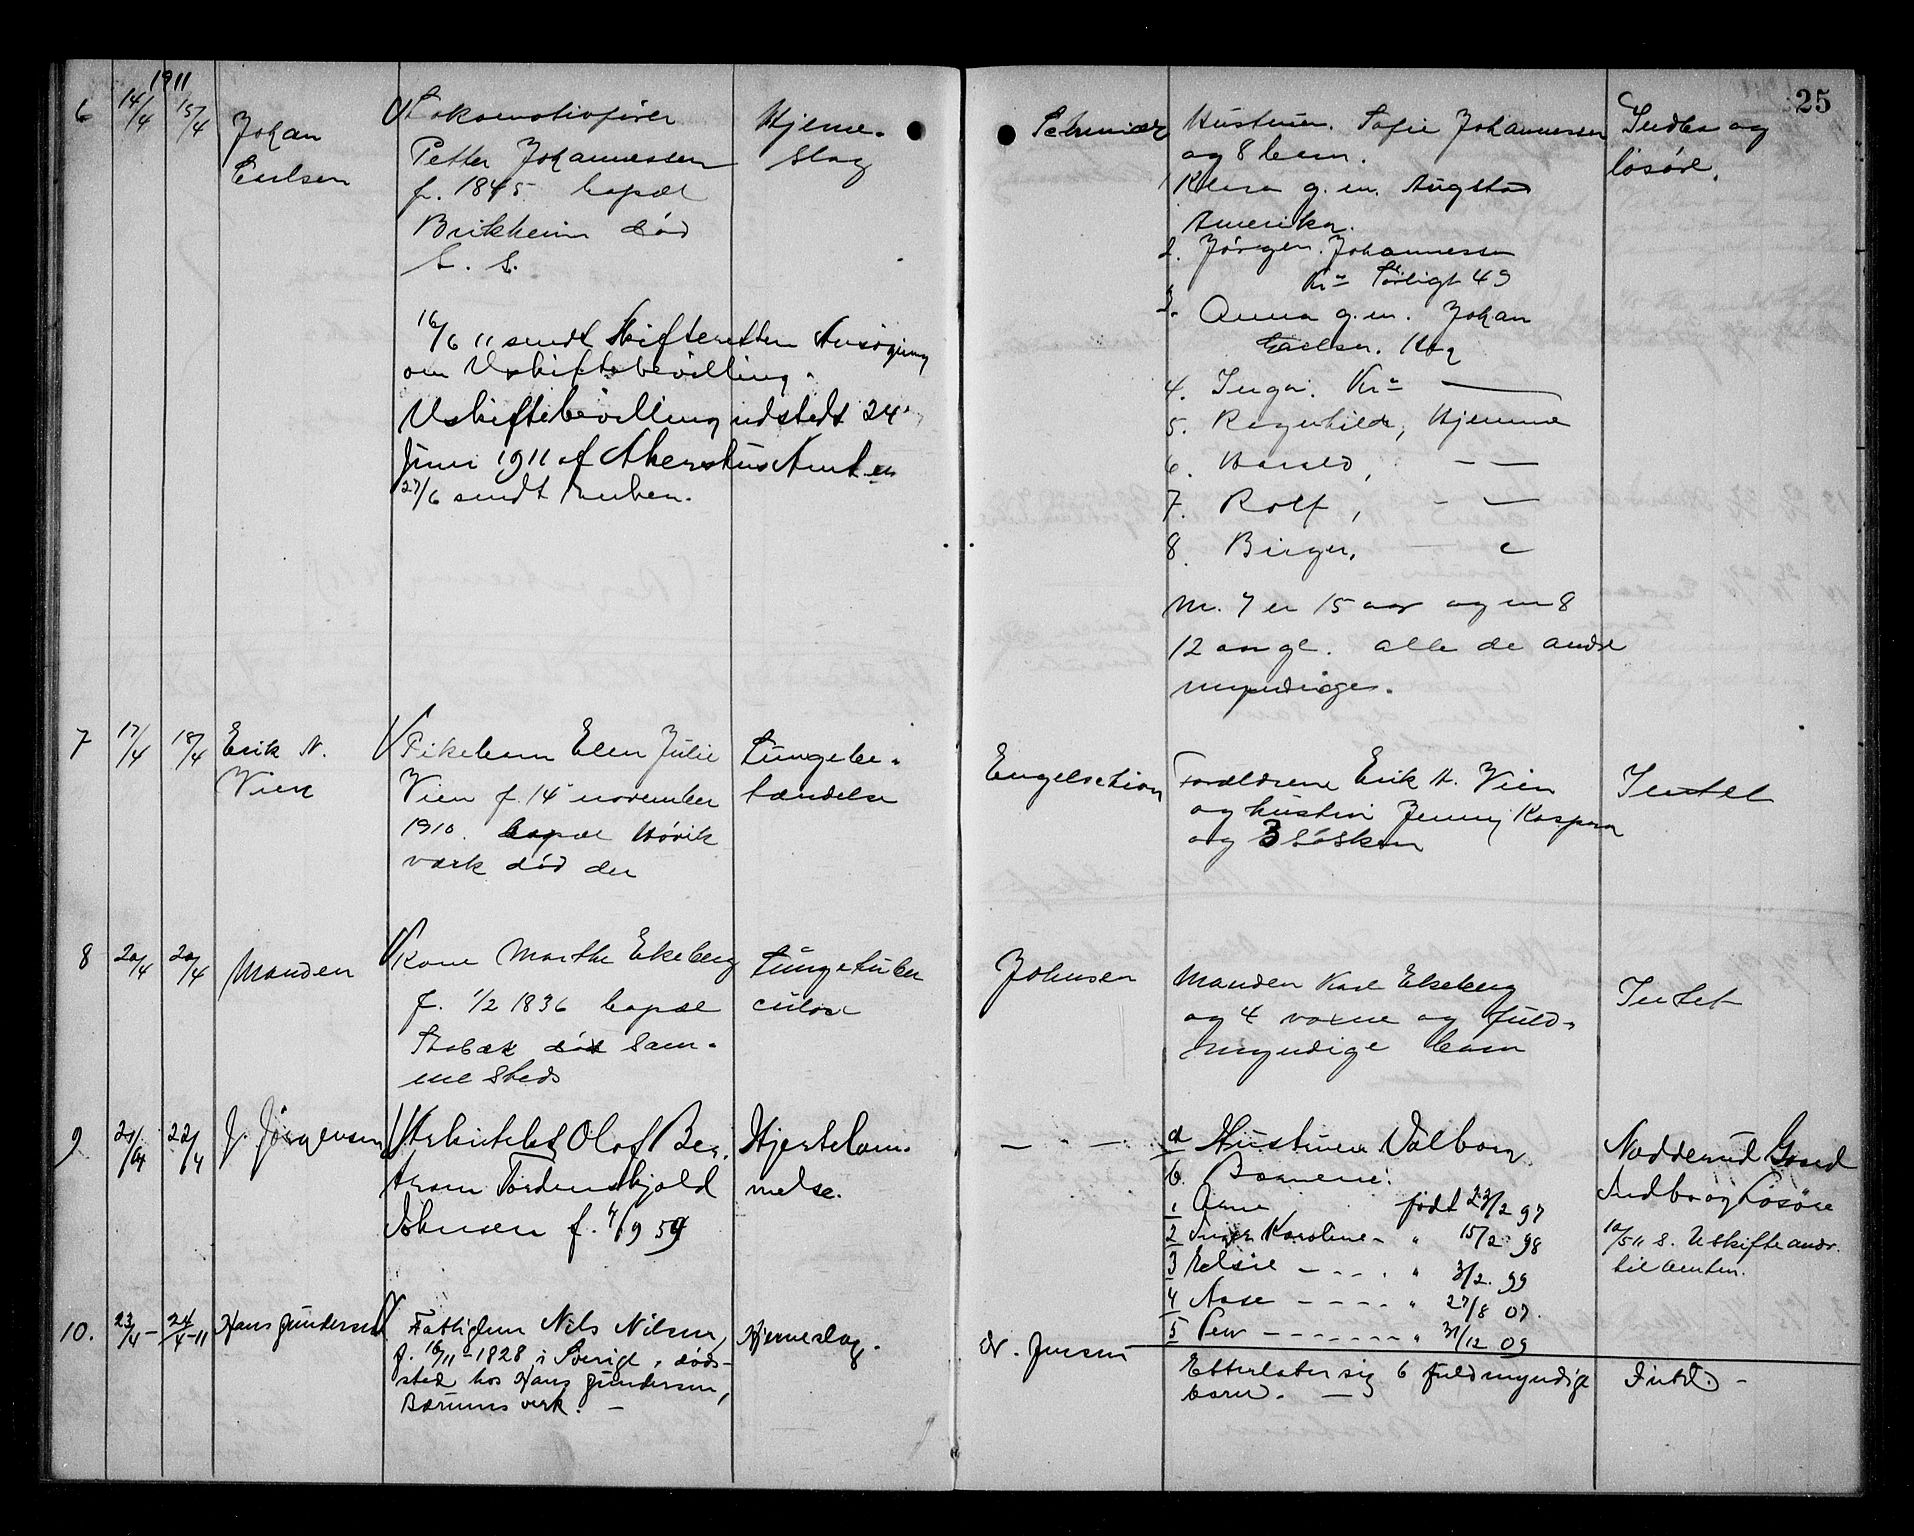 25
1911
6 14/4 15/4 Johan Carlsen
Lokomotivfører
Petter Johannessen
f. 1845 bopæl
Brikheim død
S. S.
Hjerne-
slag
16/6 11 sendt Skifteretten Ansøgning
om Uskiftebevilling.
Uskiftebevilling udstedt 24
Juni 1911 af Akershus Amt en
27/6 sendt Enken.
Hustruen. Sofie Johannessen
og 8 barn.
1 Klara g. m. Augsta
Amerika.
2. Jørgen Johannessen
Kra 49
3. Anna g. m. Johan
Carlsen.
4. Inga. Kra —
5. Ragnhilde, Hjemme
6. Harald, — —
7. Rolf, — —
8. Birger, —
nr. 7 er 15 aar og nr 8
12 aar gl. alle de andre
myndige.
Indbo og
løsøre.
7 17/4 18/4 Erik N.
Vien
Pikebarn Elen Julie
Vien f. 14 november
1910. bopæl Høvik
værk død der
Lungebe-
tændelse
Engelsction
Forældrene Erik N. Vien
og hustru Jenny Kaspara
og 3 søsken
Intet
8 20/4 20/4 Manden
Kone Marthe Ekeberg
f. 1/2 1836 bopæl
Stabæk død sam-
me steds
Lungetuber
culose
Johnsen
Manden Karl Ekeberg
og 4 voxne og fuld-
myndige barn
Intet
9 21/4 22/4 J. Jørgensen
Arkitekt Olaf Be.
Aram Tordenskjold
Johnsen f. 4/9 59
Hjertelam-
melse.
— — —
a Hustruen Valborg
b. Barnene:
1 Arne født 23/2 97
2 Inger Karoline - " 15/2 98
3 Elsie - - - " 3/2. 99
4 Aase - - - - " 27/8 07.
5 Per - - - - - " 31/12 09
Nadderud Gaard
Indbo og Løsøre
10/5 11 S. Uskifteandr.
til amten.
10. 23/4 - 24/4-11 Hans Gundersen
Fattiglem Nils Nilsen,
f. 16/11-1828 i Sverige, døds-
sted hos Hans Gundersen,
Bærums verk. —
Hjerneslag.
N. Jensen
Efterlater sig 6 fuldmyndige
barn. —
Intet. -